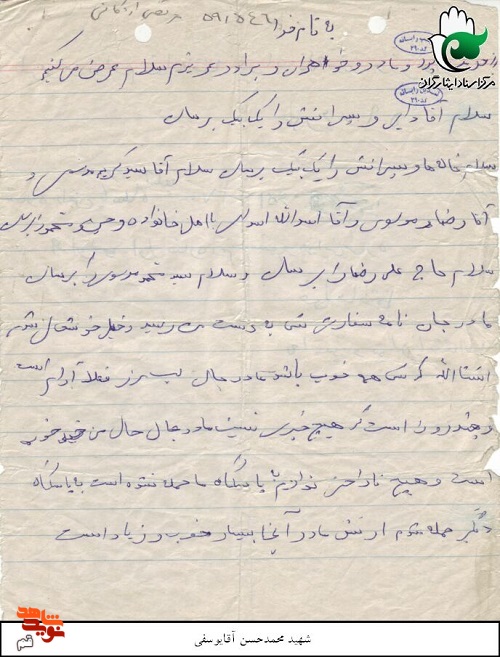 به نام خدا
مرکز اسناد ایثارگران
پدر و مادر و خواهران و برادر عزیزم سلام عرض می کنیم
سلام آقا دایی و پسرانش را یک یک برسان
سلام خاله ها و پسرانش را یک یک برسان سلام آقا سید کریم موسوی و
آقا رضا موسوی و آقا اسدالله اسدی با اهل خانواده و
سلام حاج علی رضا را برسان و سلام سید محمد موسوی را برسان
مادر جان نامه سفارشی تان به دست من رسید و خیلی خوشحال شدم
انشاالله که همه خوب باشد مادر جان فعلا آرام است
و چند روز است که هیچ خبری نیست مادر جان حال من خیلی خوب
است و هیچ ناراحتی ندارم به پاسگاه ما حمله نشده است به پاسگاه
دیگر حمله شده ارتش ما در آنجا بسیار خوب و زیاد است
شهید محمدحسن آقایوسفی
نوید شاهد
قم